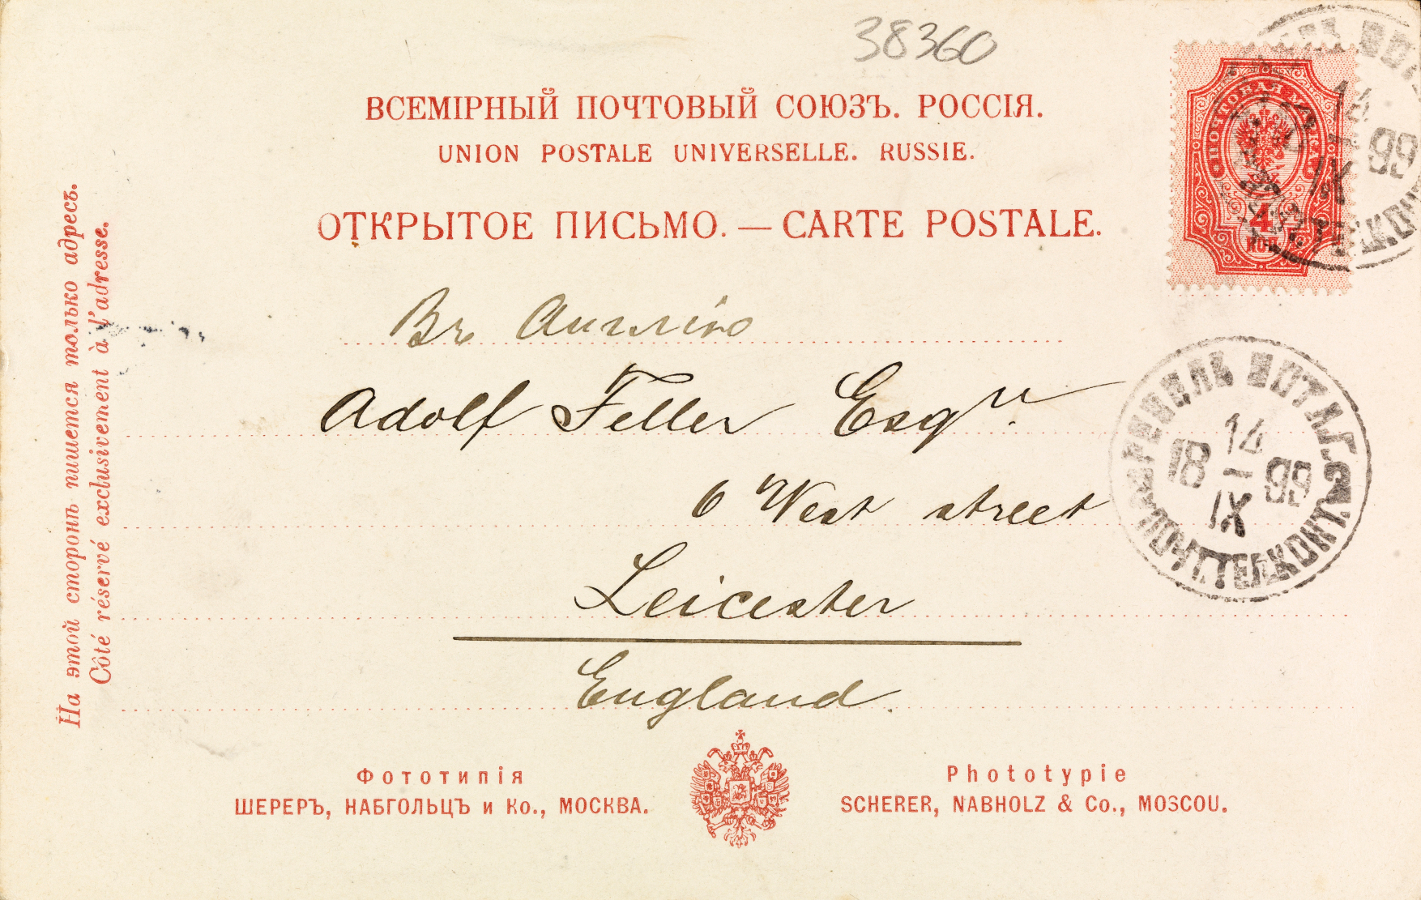 38360
ВСЕМІРНЫЙ ПОЧТОВЫЙ СОЮЗЪ. РОССІЯ.
UNION POSTALE UNIVERSELLE. RUSSIE.
ОТКРЫТОЕ ПИСЬМО. — CARTE POSTALE.
На этой сторонѣ пишется только адресъ.
Côté réservé exclusivement à l'adresse.
4
КОП
14
IX
99
Въ Англію
Adolf Feller Esqre.
6 West street
Leicester
England.
РЕВЕЛЬ
14
18 — 99
IX
ПОЧТ.ТЕЛ.КОНТ.
Фототипія
ШЕРЕРЪ, НАБГОЛЬЦЪ и Ко., МОСКВА.
Phototypie
SCHERER, NABHOLZ & Co., MOSCOU.